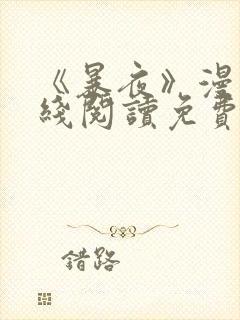 《暴夜》漫
綫閱讀免費
錯路